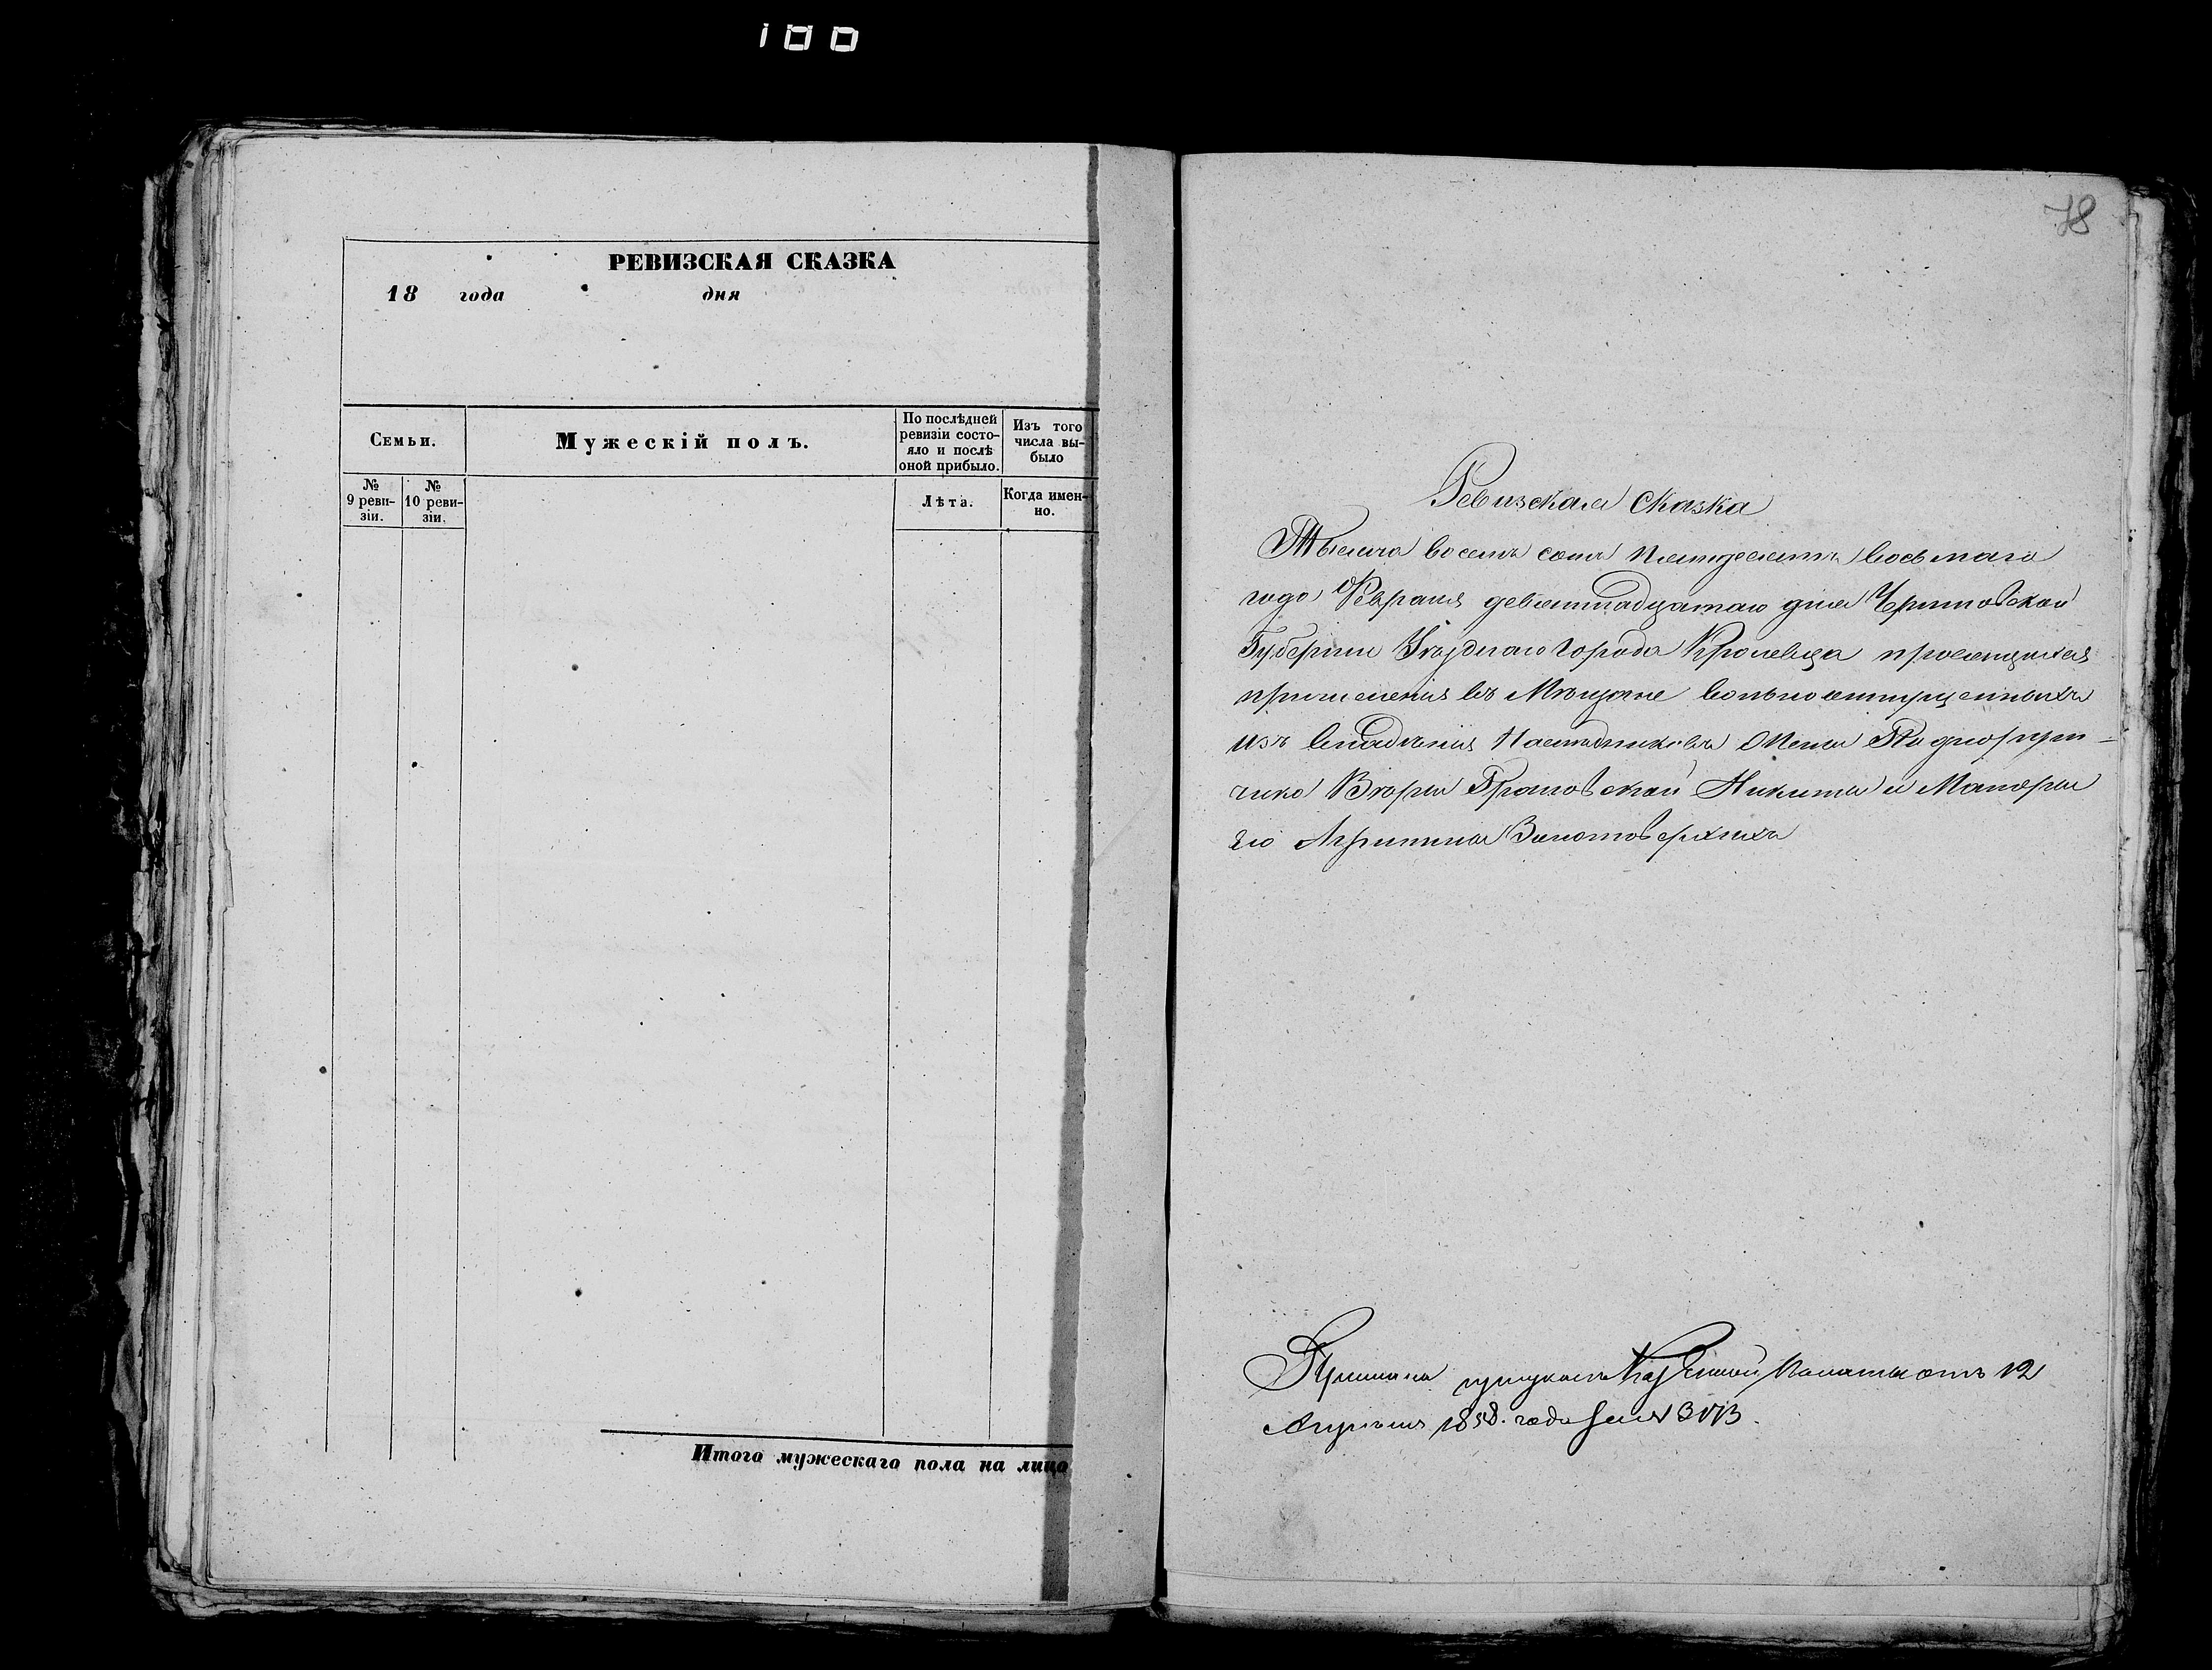 100
РЕВИЗСКАЯ СКАЗКА
18 года дня
Семьи.
Мужескій полъ.
По послѣдней ревизіи состо-
яло и послѣ оной прибыло.
Изъ того числа вы-
было
№ 9 реви-
зіи.
№ 10 реви-
зіи.
Лѣта.
Когда имен-
но.
Итого мужескаго пола на лицо
78
Ревизская Сказка
Тысяча восемъ сотъ пятдесятъ восьмаго
года Февраля девятнадцатаго дня Черниговской
Губерніи Уѣзднаго города Кролевца просящихся
причисленія въ Мѣщане вольноотпущенныхъ
изъ владѣнія Жены
Вѣры Никиты и Матери
его Золотоверхихъ
Казенной Палаты отъ 12
Апрѣля 1858. года за №